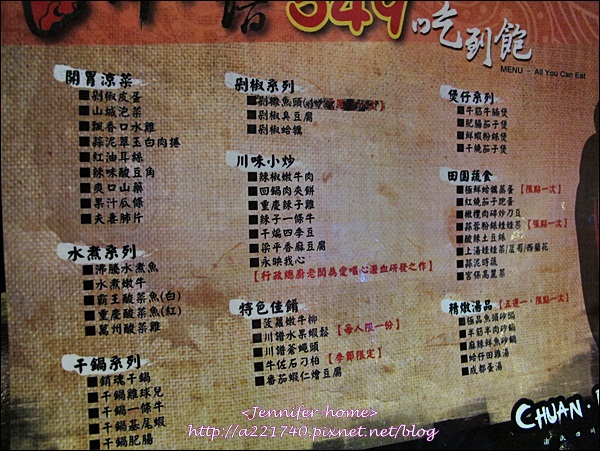 549
吃到飽
MENU - All You Can Eat
開胃涼菜
■剁椒皮蛋
■山城泡菜
■飄香口水雞
■蒜泥翠玉白肉捲
■紅油耳絲
■辣味酸豆角
■爽口山藥
■果汁瓜條
■夫妻肺片
水煮系列
■沸騰水煮魚
■水煮嫩牛
■霸王酸菜魚(白)
■重慶酸菜魚(紅)
■萬州酸菜雞
干鍋系列
■銷魂干鍋
■干鍋雞球兒
■干鍋一條牛
■干鍋基尾蝦
■干鍋肥腸
剁椒系列
■剁椒魚頭
■剁椒臭豆腐
■剁椒蛤蠣
川味小炒
■辣椒嫩牛肉
■回鍋肉夾餅
■重慶辣子雞
■辣子一條牛
■干煸四季豆
■梁平香麻豆腐
■永映我心
【行政總廚老闆為愛嘔心瀝血研發之作】
特色佳餚
■菠蘿嫩牛柳
■川譜水果蝦鬆【每人限一份】
■川譜蒼蠅頭
■牛佐石刁柏【季節限定】
■番茄蝦仁燴豆腐
煲仔系列
■牛筋牛腩煲
■肥腸茄子煲
■鮮蝦粉絲煲
■干燒茄子煲
田園蔬食
■極鮮蛤蠣蒸蛋【限點一次】
■紅燒茄子跑蛋
■橄欖肉碎炒刀豆
■蒜蓉粉絲娃娃菜【限點一次】
■酸辣土豆絲
■上湯娃娃菜/萵苣/西蘭花
■蒜泥時蔬
■宮保高麗菜
精燉湯品【五選一，限點一次】
■極品魚頭砂鍋
■羊筋羊肉砂鍋
■麻辣鮮魚砂鍋
■蛤仔田雞湯
■成都蛋湯
CHUAN
<Jennifer home>
http://a221740.pixnet.net/blog